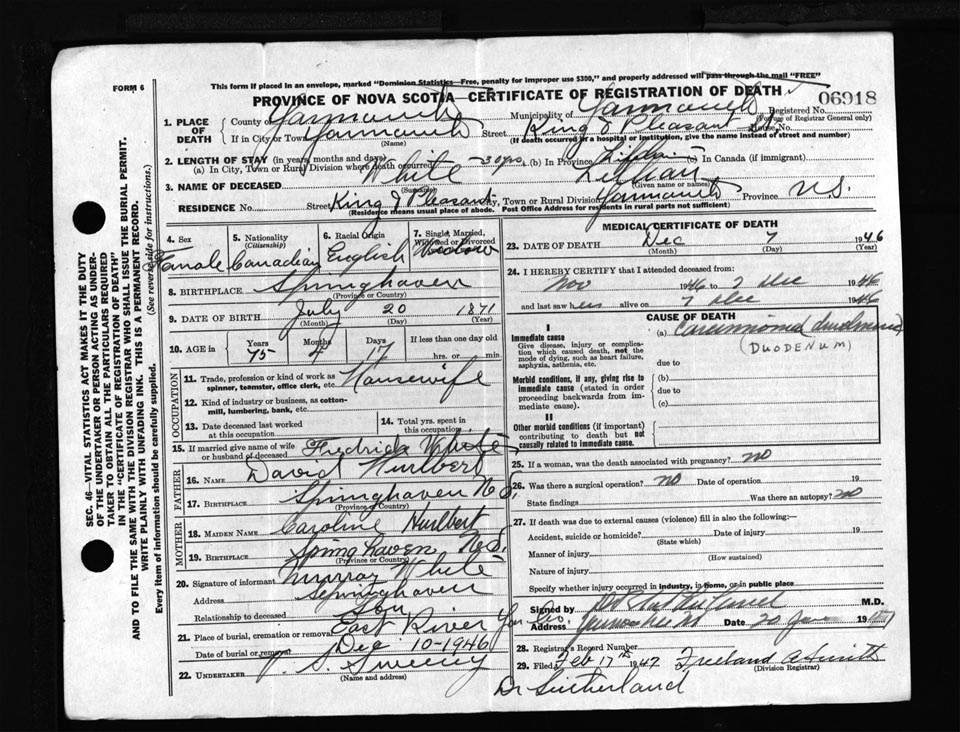 FORM 6
This form if placed in an envelope, marked "Dominion Statistics—Free, penalty for improper use $300," and properly addressed will pass through the mail "FREE"
PROVINCE OF NOVA SCOTIA—CERTIFICATE OF REGISTRATION OF DEATH
Registered No. 06918
(For use of Registrar General only)
1. PLACE OF DEATH
County of Yarmouth Municipality of Yarmouth
If in City or Town Yarmouth Street King & Pleasant House No.
(Name) (If death occurred in a hospital or institution, give the name instead of street and number)
2. LENGTH OF STAY (in years months and days)
(a) In City, Town or Rural Division where death occurred 30 yrs (b) In Province Lifetime (c) In Canada (if immigrant)
3. NAME OF DECEASED White Lillian
(Surname) (Given name or names)
RESIDENCE No. Street King & Pleasant City, Town or Rural Division Yarmouth Province N.S.
(Residence means usual place of abode. Post Office Address for residents in rural parts not sufficient)
4. Sex Female
5. Nationality (Citizenship) Canadian
6. Racial Origin English
7. Single, Married, Widowed or Divorced Widow
8. BIRTHPLACE Springhaven
(Province or Country)
9. DATE OF BIRTH July 20 1871
(Month) (Day) (Year)
10. AGE in Years Months Days If less than one day old
75 4 17 hrs. or min.
OCCUPATION
11. Trade, profession or kind of work as spinner, teamster, office clerk, etc. Housewife
12. Kind of industry or business, as cotton-mill, lumbering, bank, etc.
13. Date deceased last worked at this occupation
14. Total yrs. spent in this occupation
15. If married give name of wife or husband of deceased Fredrick White
FATHER
16. NAME David Hurlbert
17. BIRTHPLACE Springhaven N.S.
(Province or Country)
MOTHER
18. MAIDEN NAME Caroline Hurlbert
19. BIRTHPLACE Spring haven N.S.
(Province or Country)
20. Signature of informant Murray White
Address Springhaven
Relationship to deceased Son
21. Place of burial, cremation or removal East River Yar. Co.
Date of burial or removal Dec 10-1946
22. UNDERTAKER V. S. Sweeny
(Name and address)
MEDICAL CERTIFICATE OF DEATH
23. DATE OF DEATH Dec 7 1946
(Month) (Day)
24. I HEREBY CERTIFY that I attended deceased from
Nov 1946 to 7 Dec 1946
and last saw her alive on 7 Dec 1946
CAUSE OF DEATH
I
Immediate cause
Give disease, injury or complication which caused death, not the mode of dying, such as heart failure, asphyxia, asthenia, etc.
(a) Carcinoma duodenum
(DUODENUM)
due to
Morbid conditions, if any, giving rise to immediate cause (stated in order proceeding backwards from immediate cause).
(b)
due to
(c)
II
Other morbid conditions (if important) contributing to death but not causally related to immediate cause.
25. If a woman, was the death associated with pregnancy? no
26. Was there a surgical operation? no Date of operation 19
State findings Was there an autopsy? no
27. If death was due to external causes (violence) fill in also the following:—
Accident, suicide or homicide? Date of injury 19
(State which)
Manner of injury
(How sustained)
Nature of injury
Specify whether injury occurred in industry, in home, or in public place
Signed by M.D.
Address Yarmouth NS Date 20 Jan 1947
28. Registrar's Record Number
29. Filed Feb 17th 1947 Freeland A Smith
(Division Registrar)
Dr Sutherland
SEC. 46—VITAL STATISTICS ACT MAKES IT THE DUTY
OF THE UNDERTAKER OR PERSON ACTING AS UNDER-
TAKER TO OBTAIN ALL THE PARTICULARS REQUIRED
IN THE "CERTIFICATE OF REGISTRATION OF DEATH"
AND TO FILE THE SAME WITH THE DIVISION REGISTRAR WHO SHALL ISSUE THE BURIAL PERMIT.
WRITE PLAINLY WITH UNFADING INK. THIS IS A PERMANENT RECORD.
Every item of information should be carefully supplied. (See reverse side for instructions.)